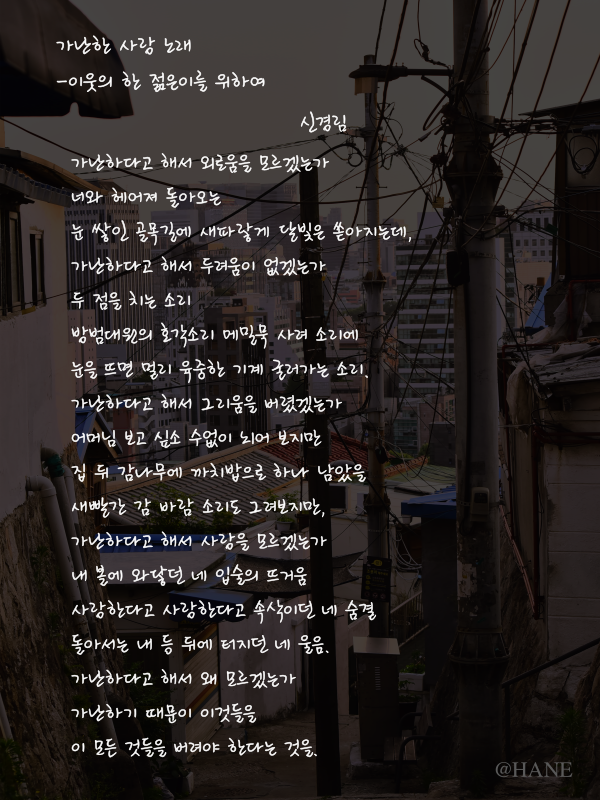 가난한 사람 노래
-이웃의 한 젊은이를 위하여
신경림
가난하다고 해서 외로움을 모르겠는가
너와 헤어져 돌아오는
눈 쌓인 골목길에 새파랗게 달빛은 쏟아지는데,
가난하다고 해서 두려움이 없겠는가
두 점을 치는 소리
방범대원의 호각소리 메밀묵 사려 소리에
눈을 뜨면 멀리 육중한 기계 굴러가는 소리.
가난하다고 해서 그리움을 버렸겠는가
어머님 보고 싶소 수없이 뇌어 보지만
집 뒤 감나무에 까치밥으로 하나 남았을
새빨간 감 바람 소리도 그려보지만,
가난하다고 해서 사랑을 모르겠는가
내 볼에 와닿던 네 입술의 뜨거움
사랑한다고 사랑한다고 속삭이던 네 숨결
돌아서는 내 등 뒤에 터지던 네 울음.
가난하다고 해서 왜 모르겠는가
가난하기 때문이 이것들을
이 모든 것들을 버려야 한다는 것을.
@HANE